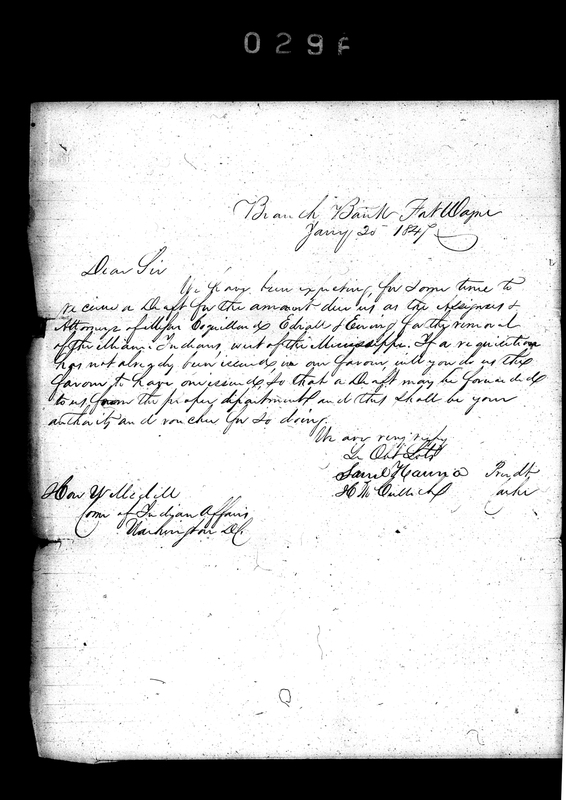 029F
Branch Bank Fort Wayne
Jany 25 1847
Dear Sir
We have been expecting for some time to
receive a Draft for the amount due us as the Assignees &
Attorneys of Messrs Coquillard Edsall & Ewing for the removal
of the Miami Indians west of the Mississippi. If a requisition
has not already been issued in our favour, will you do us the
favour to have one issued, so that a Draft may be forwarded
to us from the proper department and this shall be your
authority and voucher for so doing.
We are very respy
Yr Obt Svts
Saml Hanna Presdt
H McCulloch Cashr
Hon W Medill
Comr of Indian Affairs
Washington DC.